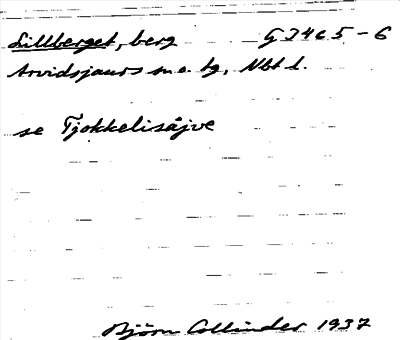 Lillberget, berg G 3465-6
Arvidsjaurs sn o. tg, Nbt l.
se Tjokkelisåjve
Björn Collinder 1937